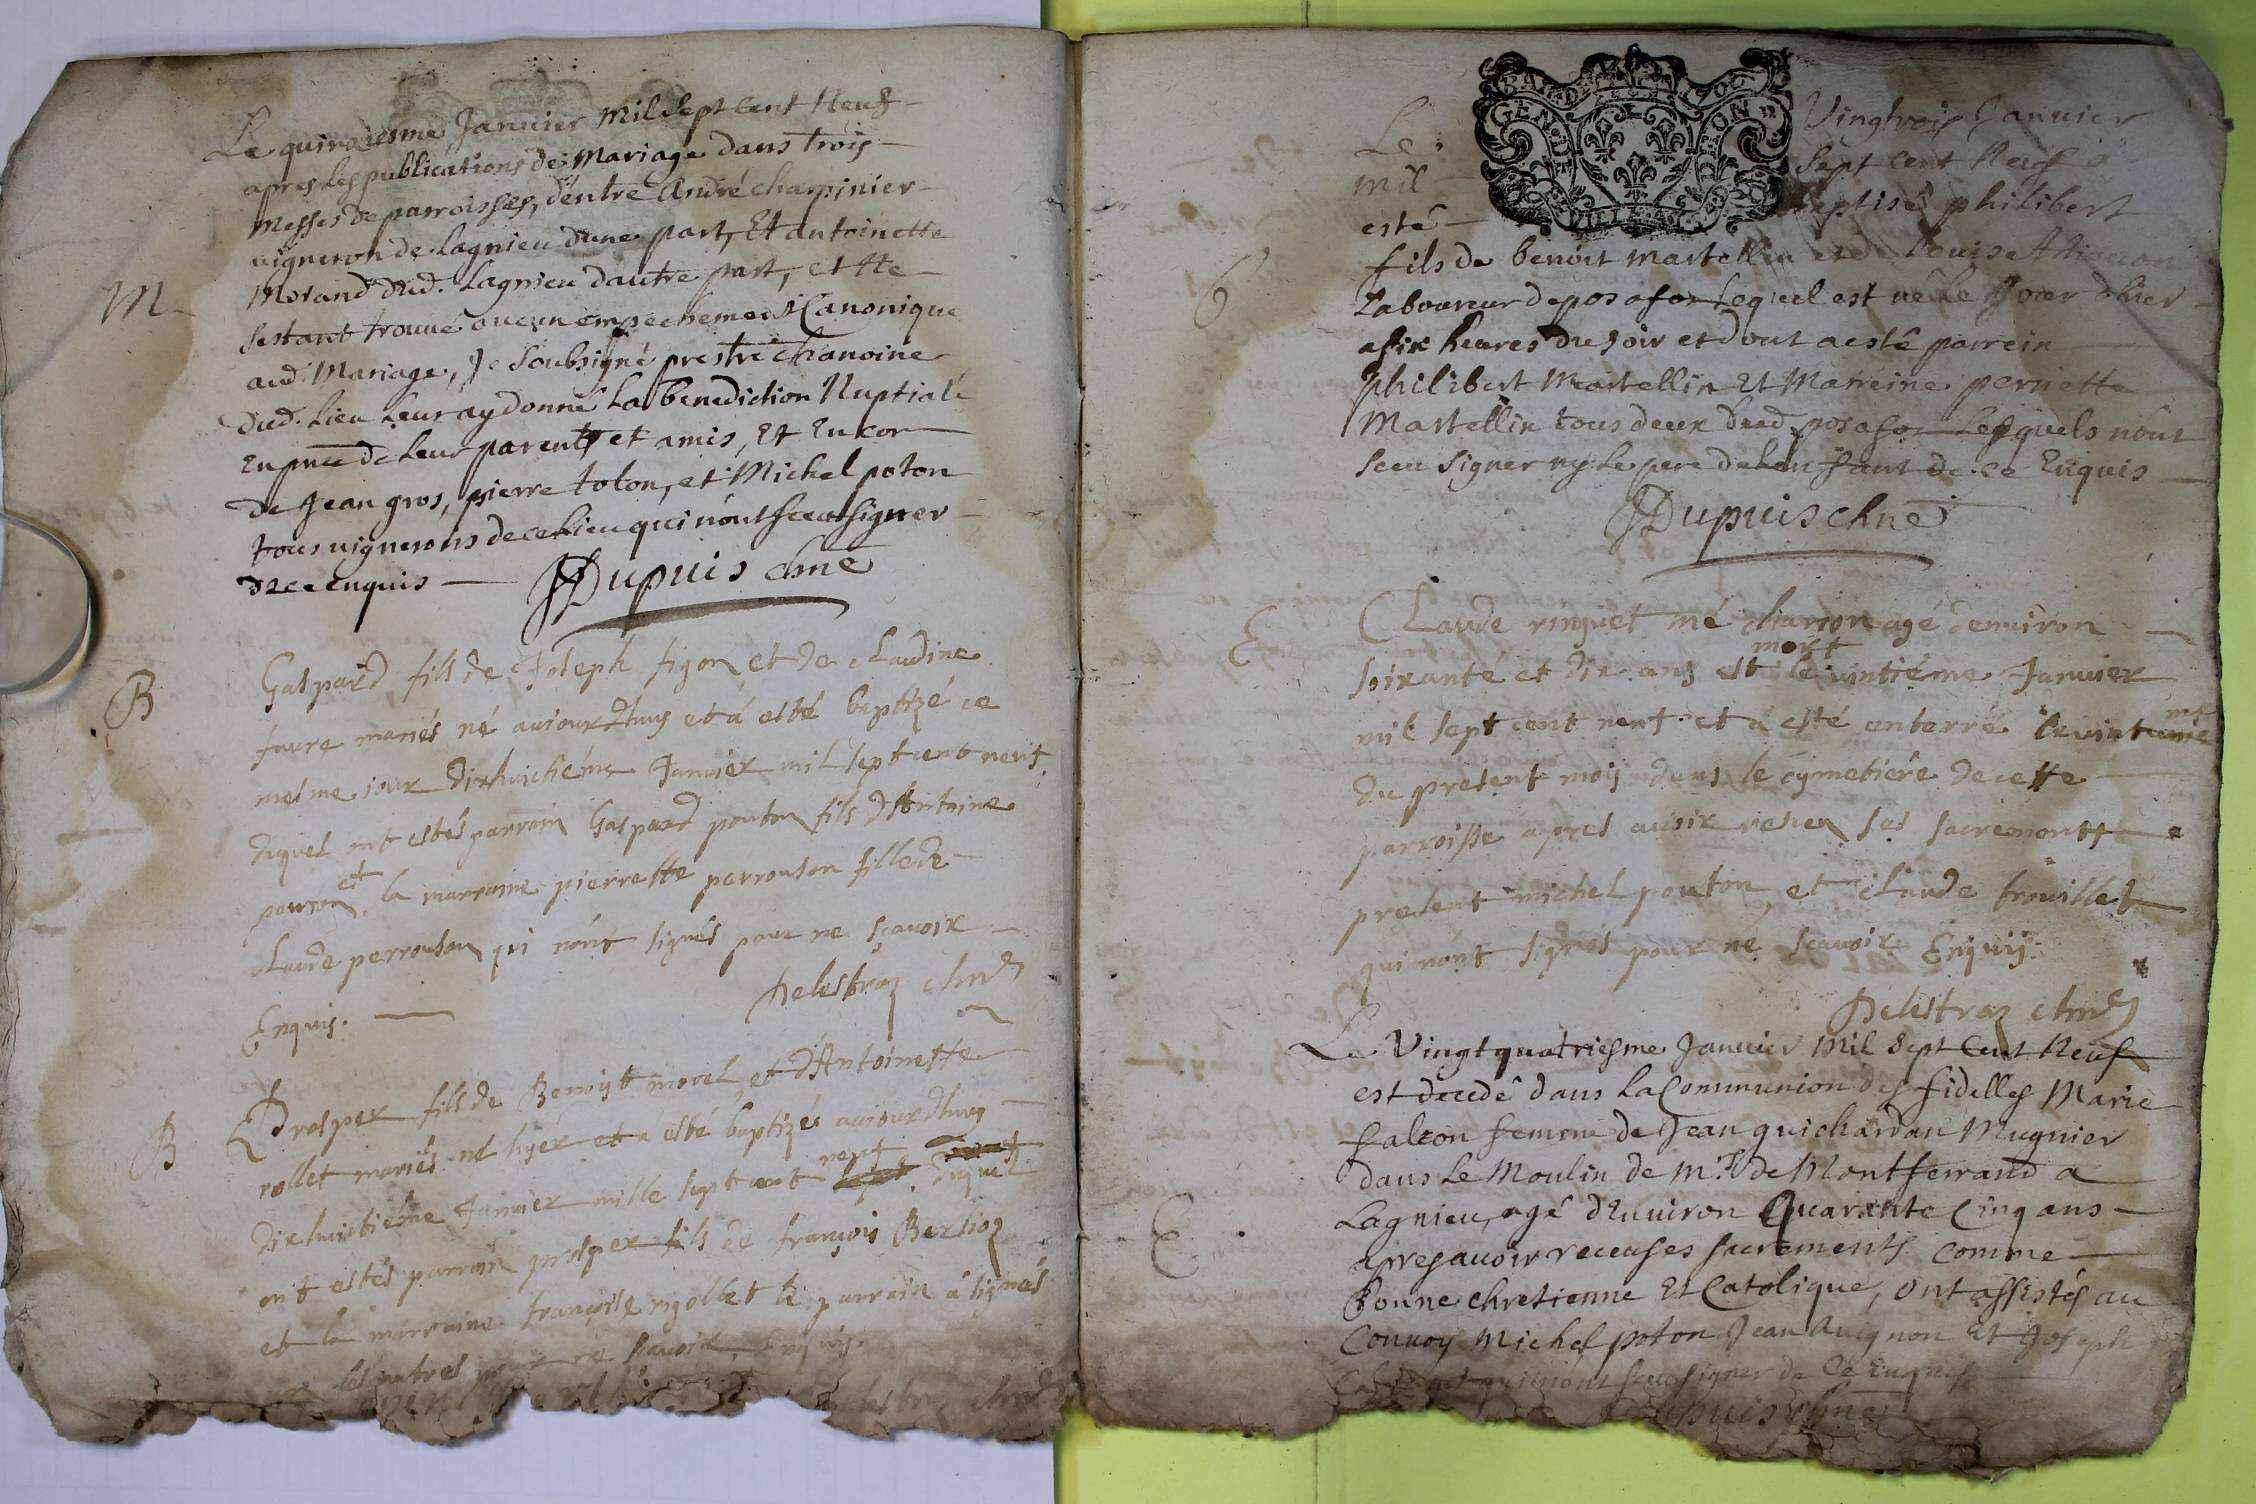 Le quinziesme Janvier Mil Sept Cent Neuf
apres les publications de Mariage dans trois
Messes de parroisses, d'entre André charpinier
vigneron de Lagnieu dune part, Et antoinette
Morand dud. Lagnieu dautre part, et ne
sestant trouué aucun empechement Canonique
aud. Mariage, Je soubsigné prestre chanoine
dud. Lieu Leur ay donné La benediction Nuptiale
En pnce de Leurs parents et amis, Et Encor
de Jean gros, pierre toton, et Michel poton
tous vignerons de ce Lieu qui n'ont sceu signer
de ce enquis
Dupuis chne
M
B
Gaspard fils de Joseph figon et de claudine
faure mariés né aujourdhuy et á esté baptizé ce
mesme jour dixhuictiéme Janvier mil sept cent neuf.
duquel ont estés parrain Gaspard ponton fils d'Antoine
ponton et la marraine pierrette perrouson fille de
claude perrouson qui n'ont signés pour ne sçavoir
Enquis.
Delestraz chne
B
Prosper fils de Benoist morel et d'Antoinette
rollet mariés né hyer et a esté baptizé aujourdhuy
dixhuictiéme Janvier mille sept cent neuf duquel
ont estés parrain prosper fils de françois Berlioz
et la marraine françoise rigollet le parrain á signés
les autres pour ne sçavoir Enquis.
Delestraz chne
Le Vingtrois Janvier
mil sept cent Neuf a
esté baptisé philibert
6
fils de benoit Martellin et de Louise
Laboureur de posafor Lequel est né Le Jour dhier
a six heures du soir et dont a esté parrein
philibert Martellin Et Marreine pernette
Martellin tous deux dud. posafor Lesquels n'ont
sceu signer ny Le pere de Lenfant de ce Enquis
Dupuis chne
E
Claude rinquet né agé denuiron
soixante et dix ans est mort le vintiéme Janvier
mil sept cent neuf et á esté enterré le
du present mois dans le cymetiére de cette
parroisse apres avoir receu ses sacrements
present michel ponton et claude trouillet
qui n'ont signés pour ne sçavoir Enquis.
Delestraz chne
Le Vingt quatriesme Janvier Mil Sept Cent Neuf
est decedé dans La Communion des fidelles Marie
falcon femme de Jean guichardan Mugnier
dans Le Moulin de Mr. de Montferrand a
Lagnieu, agé d'Enuiron Quarante Cinq ans
E
apres avoir receu ses sacrements comme
bonne chretienne Et Catolique, ont assistés au
Convoy Michel poton Jean Auignon Et Joseph
qui n'ont sceu signer de Ce Enquis
Dupuis chne